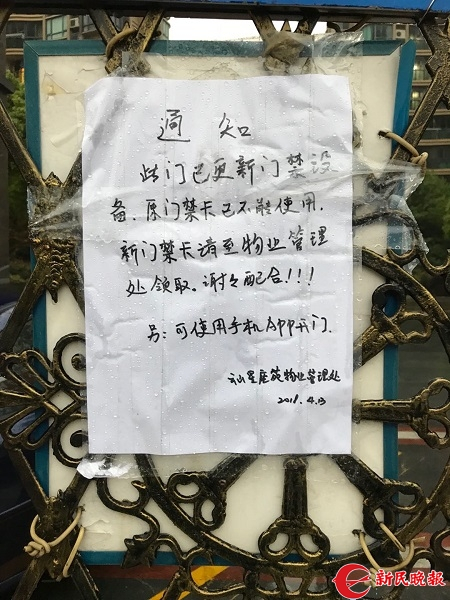 通知
此门已更新门禁设
备.原门禁卡已不能使用.
新门禁卡请至物业管理
处领取。谢々配合!!!
另:可使用手机APP开门.
星座苑物业管理处
2018.4.13
新民晚报